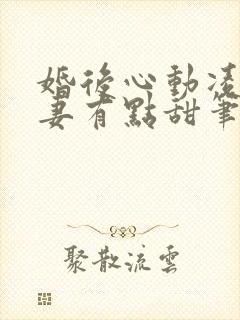 婚後心動凌
妻有點甜筆
聚散流雲